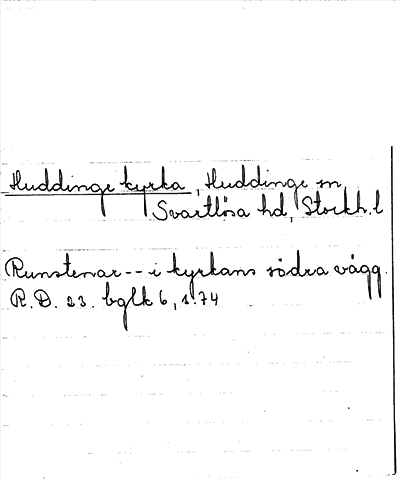 Huddinge kyrka, Huddinge sn
Svartlösa hd, Stockh. l
Runstenar -- i kyrkans södra vägg.
R.D. 23. bglk 6, s. 74